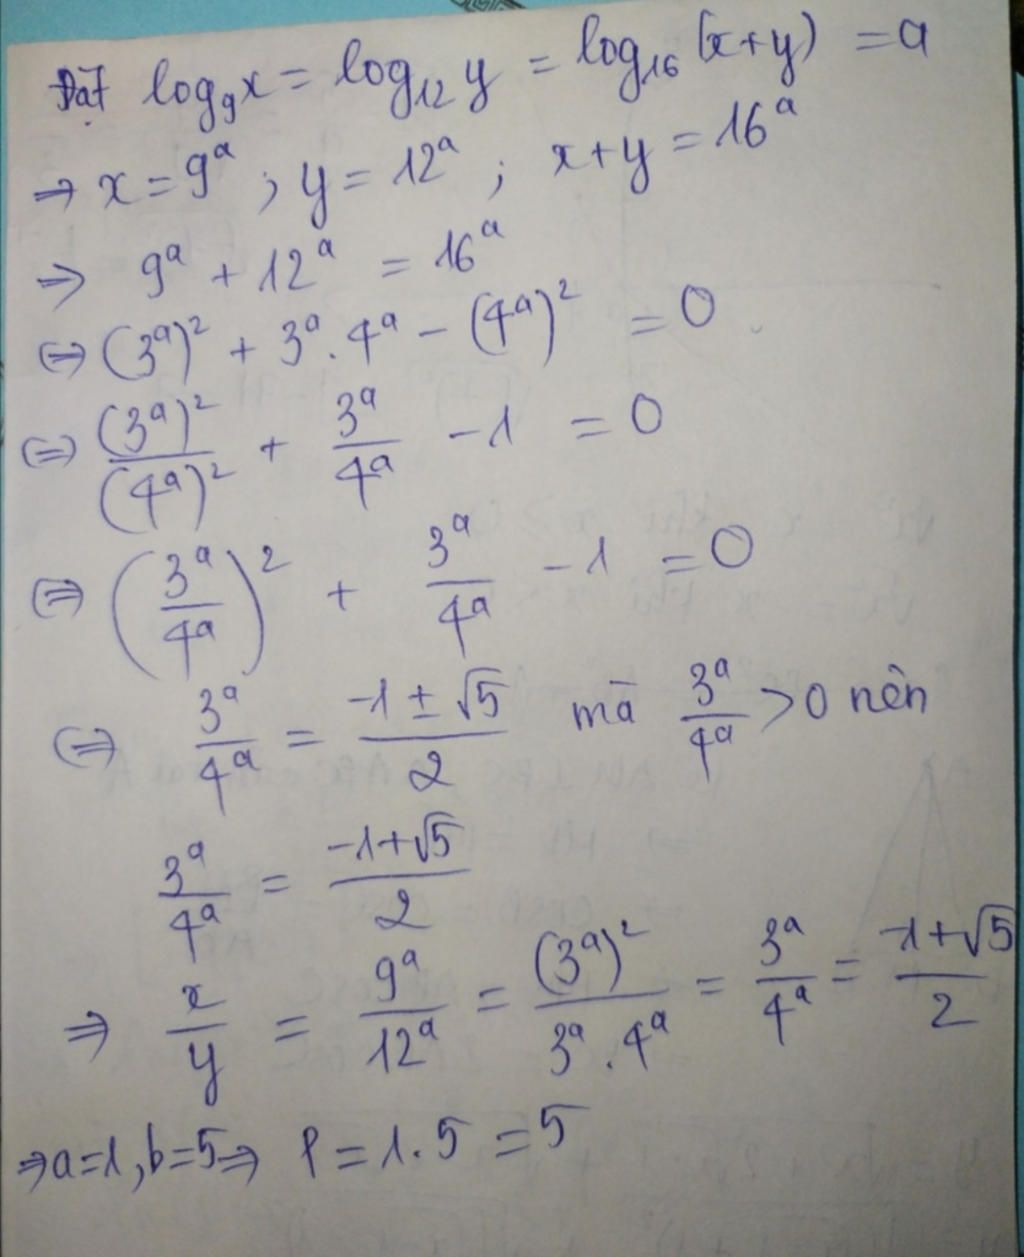 Đặt log₉x = log₁₂y = log₁₆(x+y) = a
⇒ x = 9ᵃ ; y = 12ᵃ ; x+y = 16ᵃ
⇒ 9ᵃ + 12ᵃ = 16ᵃ
⇔ (3ᵃ)² + 3ᵃ . 4ᵃ - (4ᵃ)² = 0
⇔ (3ᵃ)²/(4ᵃ)² + 3ᵃ/4ᵃ - 1 = 0
⇔ (3ᵃ/4ᵃ)² + 3ᵃ/4ᵃ - 1 = 0
⇔ 3ᵃ/4ᵃ = (-1 ± √5)/2 mà 3ᵃ/4ᵃ > 0 nên
3ᵃ/4ᵃ = (-1+√5)/2
⇒ x/y = 9ᵃ/12ᵃ = (3ᵃ)²/(3ᵃ . 4ᵃ) = 3ᵃ/4ᵃ = (-1+√5)/2
⇒ a=1, b=5 ⇒ P = 1.5 = 5